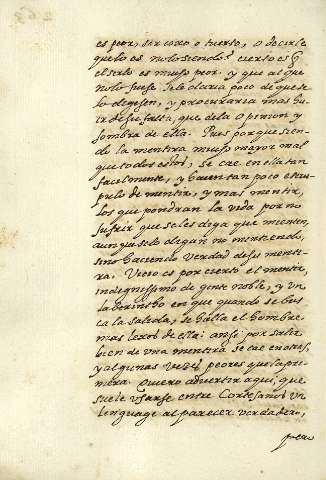 es peor, ser coxo o tuerto, o decirle
que lo es no lo siendo? cierto es q̃
el serlo es mucho peor, y que al que
no lo fuese se le daria poco de que se
lo dixesen, y procuraria mas hu
ir de su falta, que de la opinion y
sombra de ella. Pues porque sien
do la mentira mucho mayor mal
que todos estos, se cae en ella tan
facilmente, y hacen tan poco escru
pulo de mentir, y mas mentir,
los que pondran la vida por no
sufrir que se les diga que mienten,
aunque se lo digan no mintiendo,
sino haciendo verdad de su menti
ra. Vicio es por cierto el mentir,
indignissimo de gente noble, y un
laberintho en que quando se bus
ca la salida, se halla el hombre
mas lexos de ella: ansi por salir
bien de una mentira se cae en otras,
y algunas vezes peores que la pri
mera. Quiero advertir aqui, que
suele usarse entre Cortesanos un
linguage al parecer verdadero,
pero